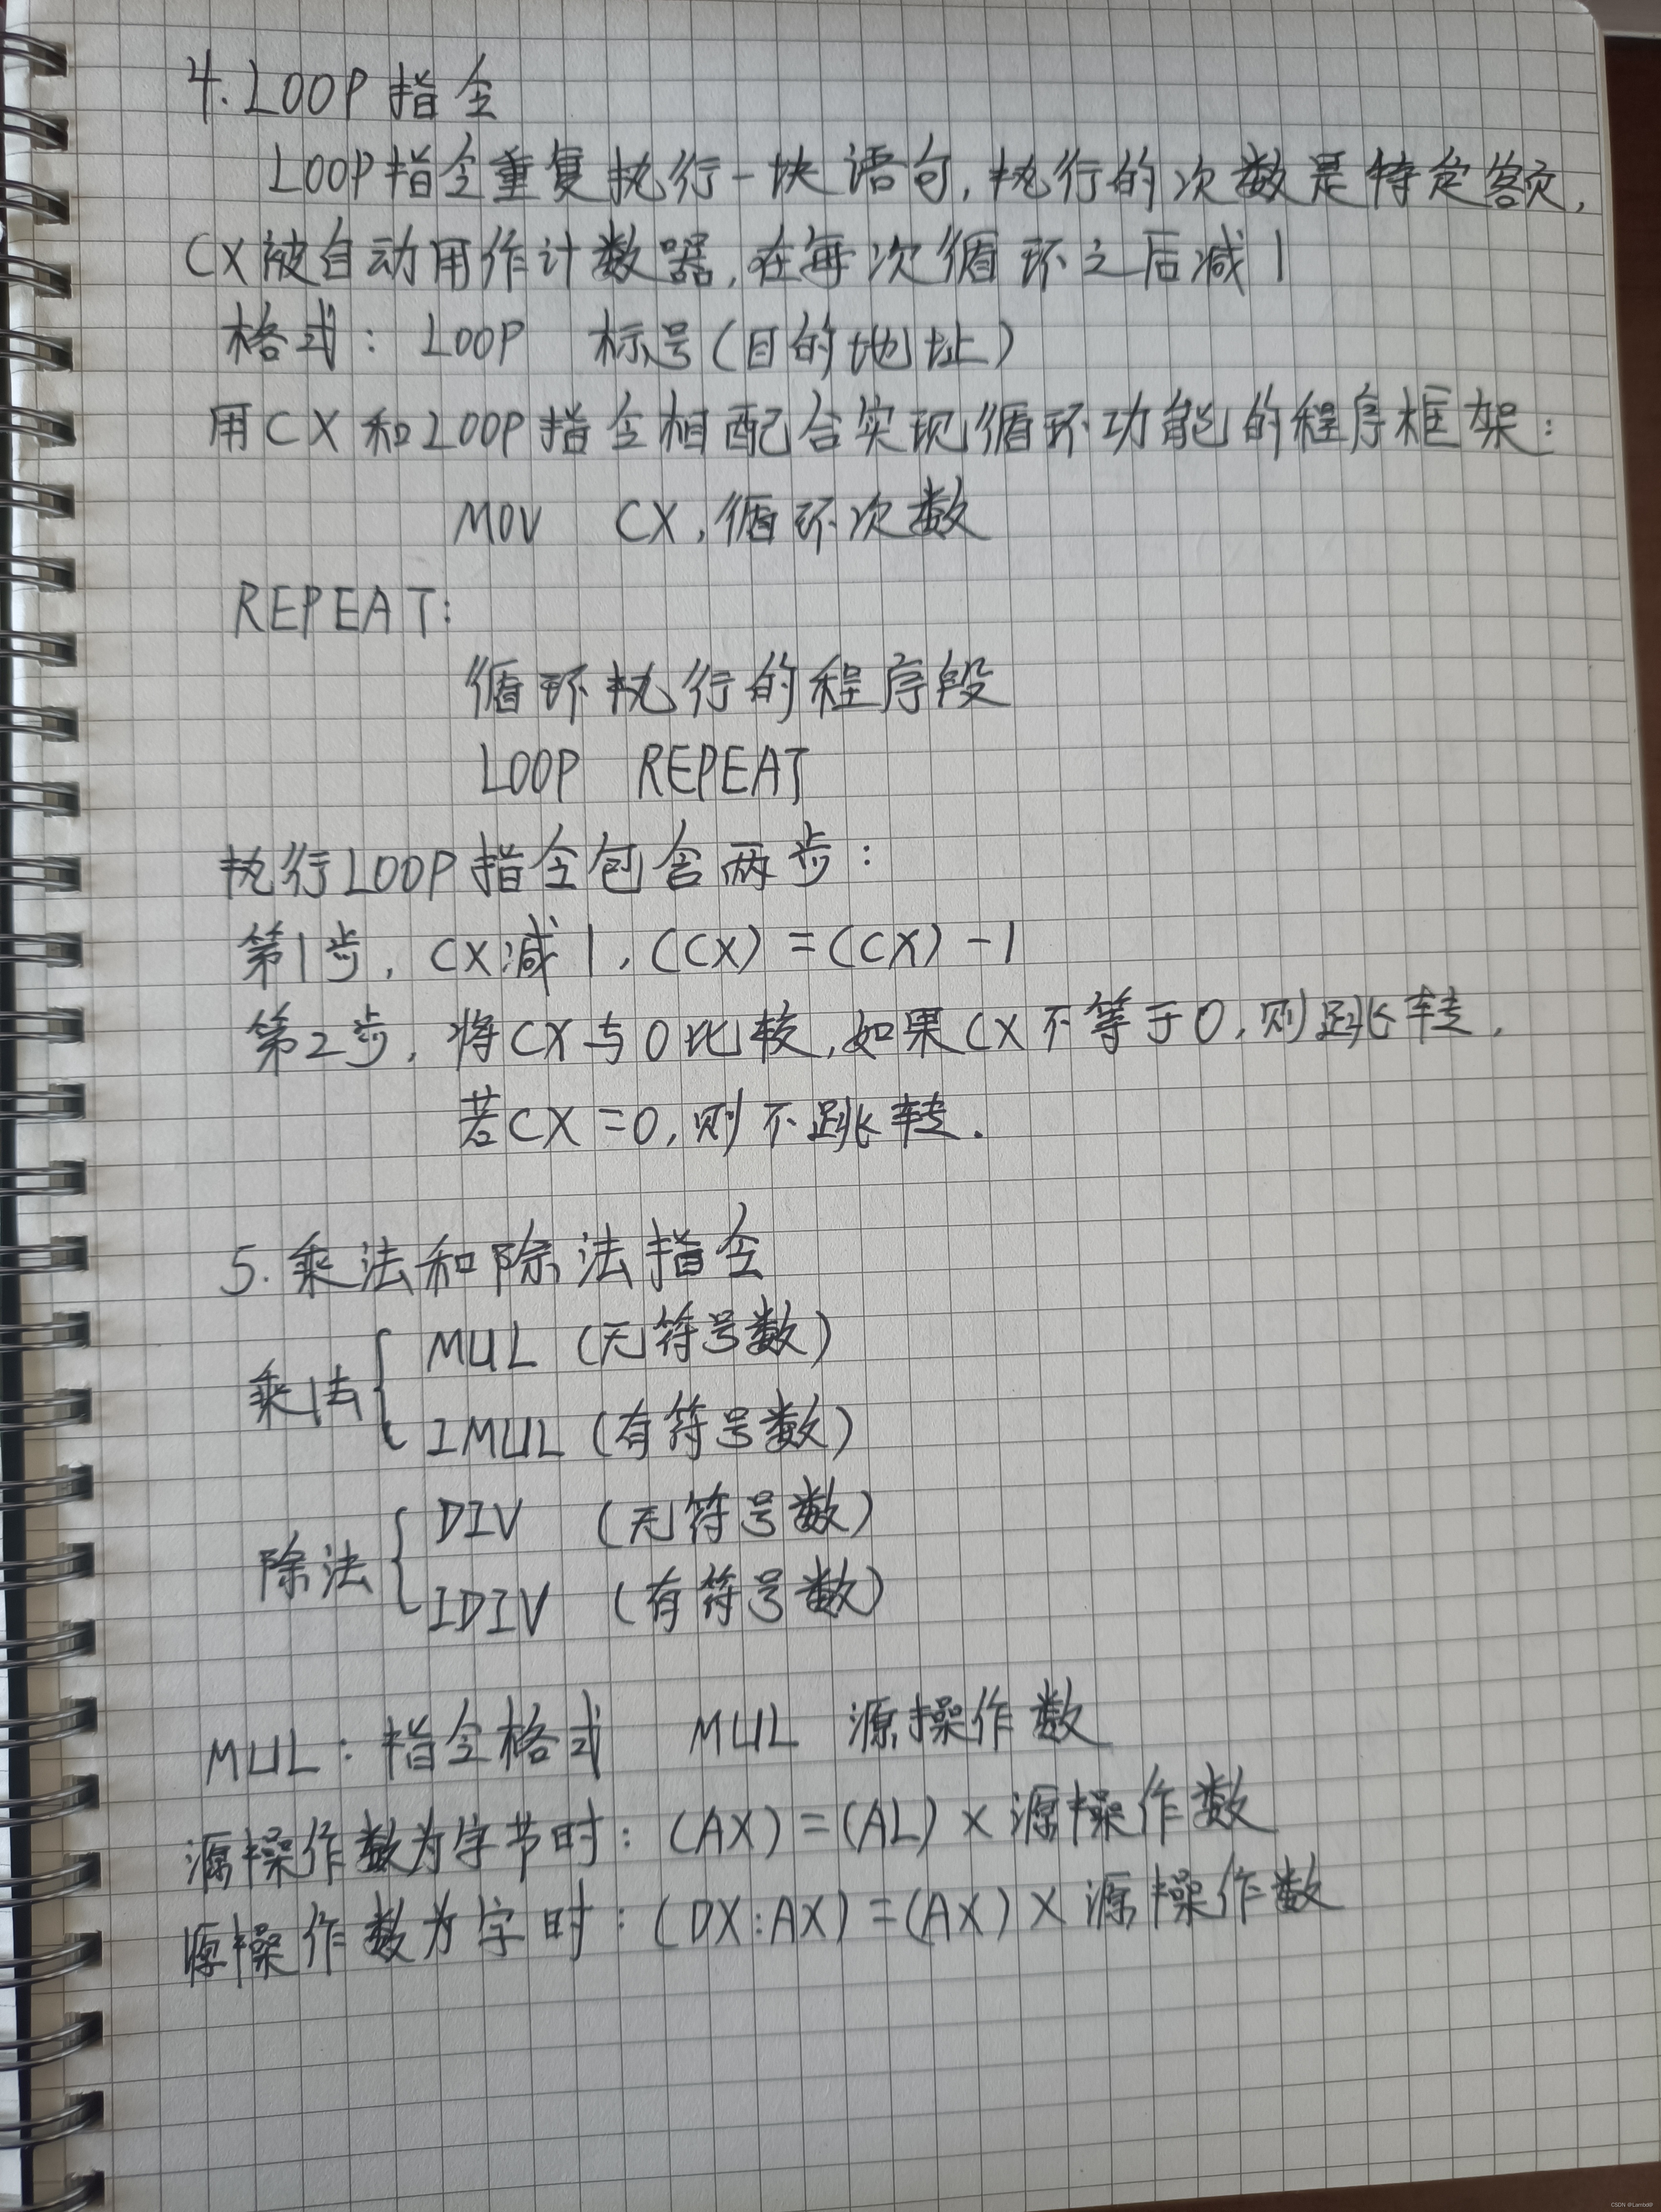 4. LOOP 指令
LOOP指令重复执行一块语句,执行的次数是特定额,
CX被自动用作计数器,在每次循环之后减1
格式: LOOP 标号(目的地址)
用CX和LOOP指令相配合实现循环功能的程序框架:
MOV CX,循环次数
REPEAT:
循环执行的程序段
LOOP REPEAT
执行LOOP指令包含两步:
第1步, CX减1, (CX) = (CX) - 1
第2步, 将CX与0比较,如果CX不等于0,则跳转,
若CX=0,则不跳转.
5. 乘法和除法指令
乘法{ MUL (无符号数)
IMUL (有符号数)
除法{ DIV (无符号数)
IDIV (有符号数)
MUL: 指令格式 MUL 源操作数
源操作数为字节时: (AX) = (AL) × 源操作数
源操作数为字时: (DX:AX) = (AX) × 源操作数